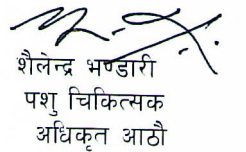 शैलेन्द्र भण्डारी
पशु चिकित्सक
अधिकृत आठौ